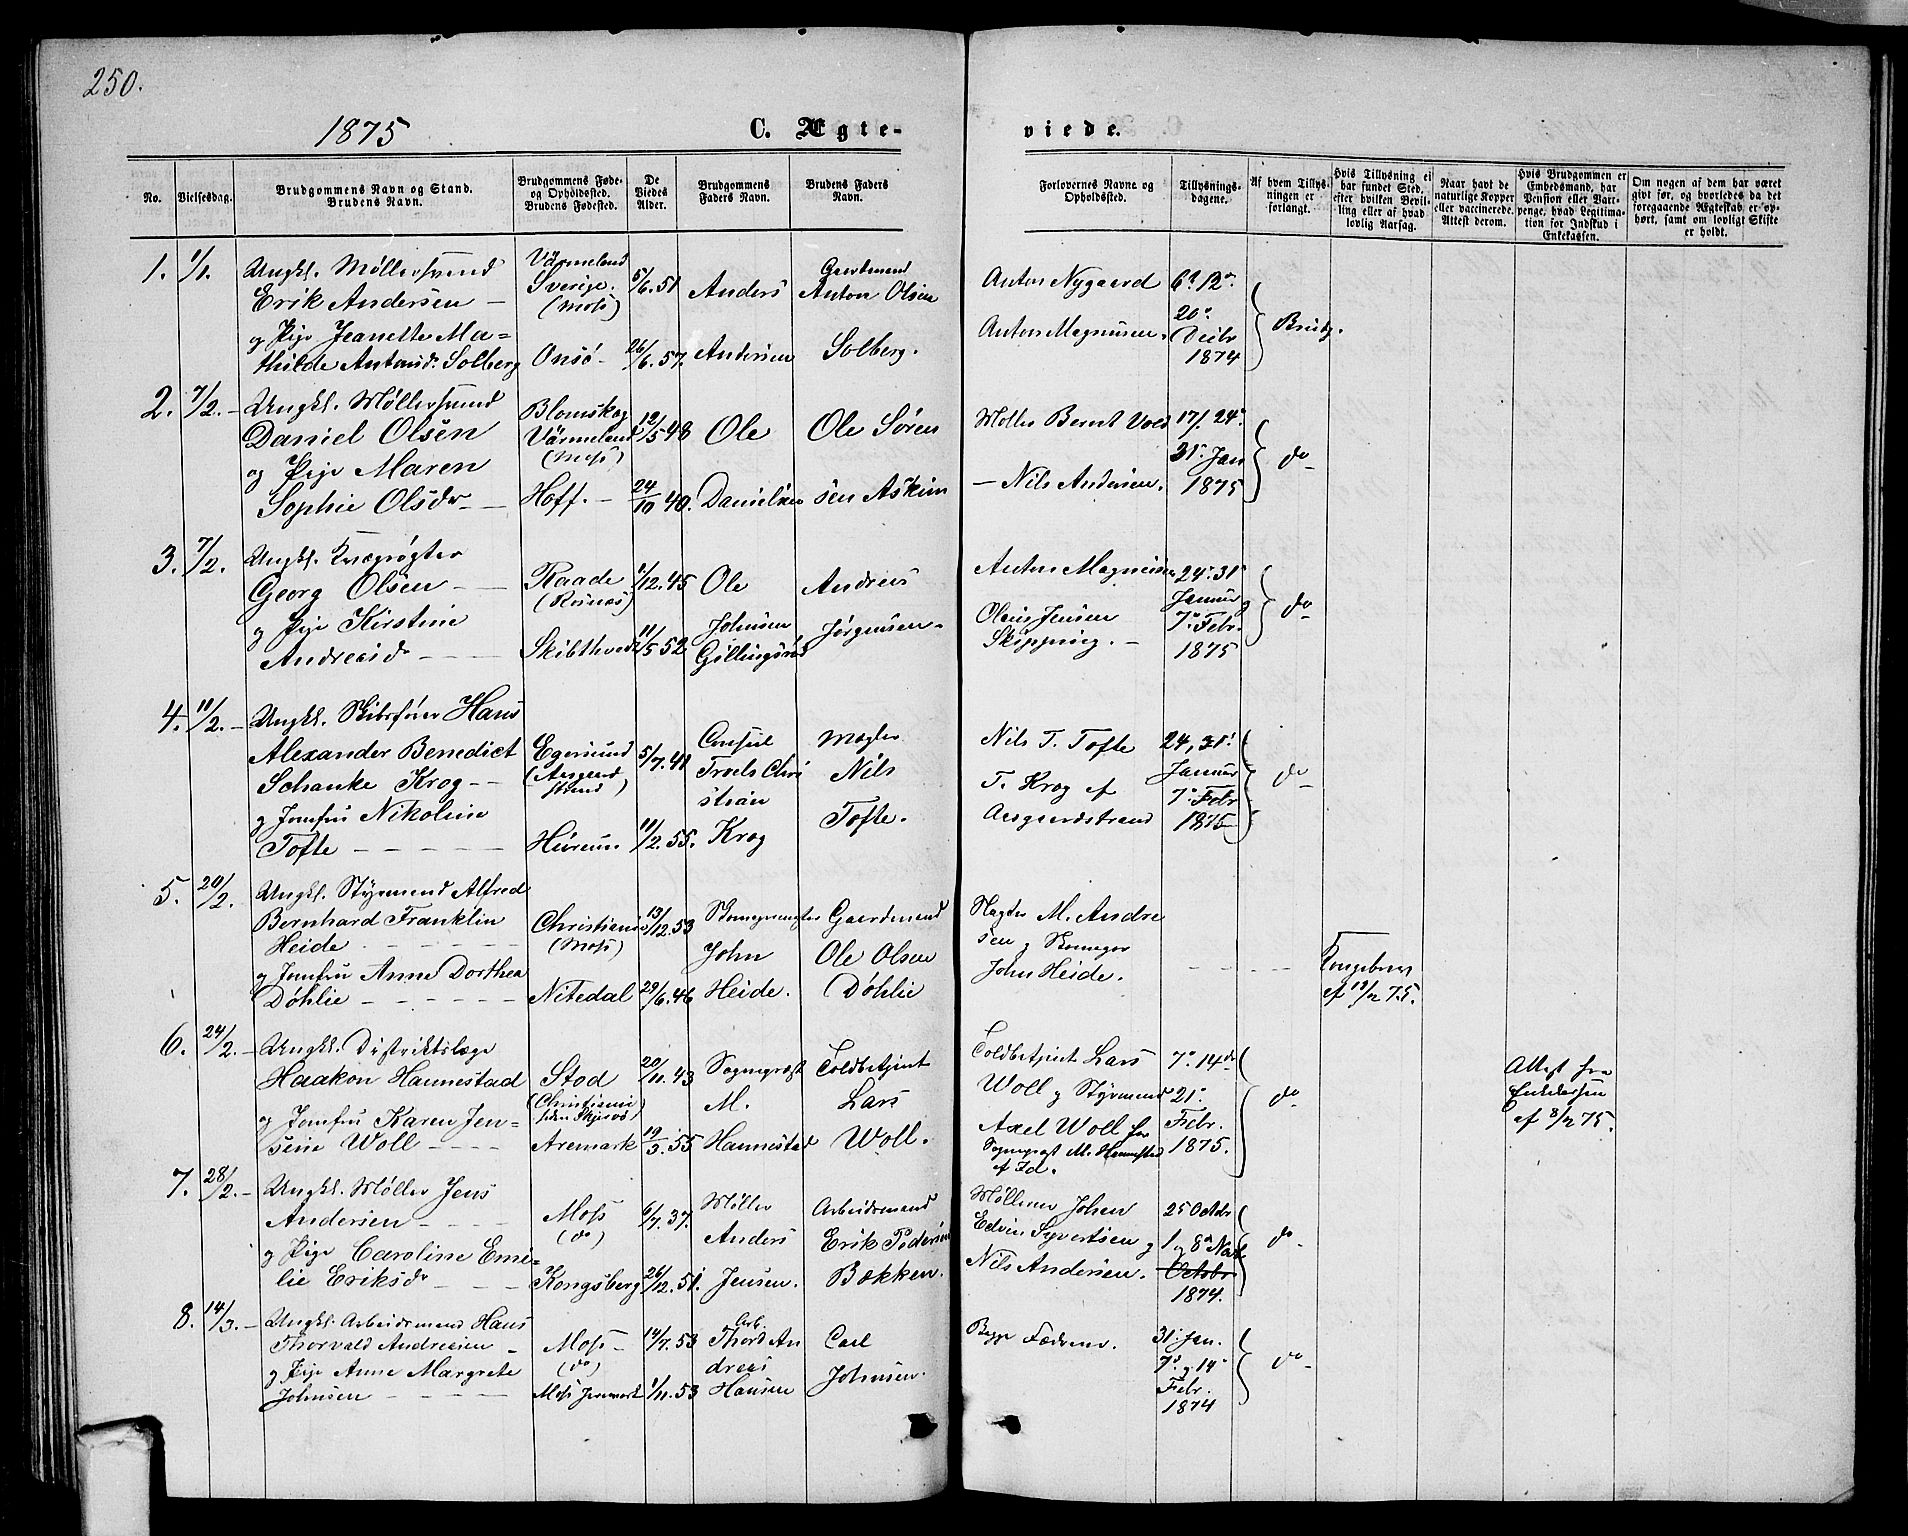 250.
1875
C. Ægte-
viede.
No.
Vielsesdag.
Brudgommens Navn og Stand.
Brudens Navn.
Brudgommens Føde-
og Opholdssted.
Brudens Fødested.
De
Viedes
Alder.
Brudgommens
Faders Navn.
Brudens Faders
Navn.
Forlovernes Navne og
Opholdssted.
Tillysnings-
dagene.
Af hvem Tillys-
ningen er
forlangt.
Hvis Tillysning ei
har fundet Sted,
efter hvilken Bevil-
ling eller af hvad
lovlig Aarsag.
Naar havt de
naturlige Kopper
eller vaccinerede.
Attest derom.
Hvis Brudgommen er
Embedsmand, har
Pension eller Vart-
penge, hvad Legitima-
tion for Indskud i
Enkekassen.
Om nogen af dem har været
gift før, og hvorledes da det
foregaaende Ægteskab er op-
hørt, samt om lovligt Skifte
er holdt.
1. 1/1.
Ungkl. Møllersvend
Erik Andersen —
og Pige Jeanette Ma-
thilde Antonsd. Solberg
Värmeland
Sverige.
(Moss)
Onsö -
5/6. 51
26/6. 57.
Anders
Andersen
Gaardmand
Anton Olsen
Solberg.
Anton Nygaard
Anton Magnusen.
6. 12.
20.
Decbr
1874
Brudg.
2. 7/2. -
Ungkl. Møllersvend
Daniel Olsen
og Pige Maren
Sophie Olsdr -
Blomskog
Värmeland
(Moss)
Hoff. -
12/5 48
24/10 40.
Ole
Danielsen
Ole Sören
sen Askim
Møller Bernt Vold
- Nils Andersen.
17/. 24.
31. Jan
1875
do -
3. 7/2.
Ungkl. Kreaturrøgter
Georg Olsen -
og Pige Kirstine
Andreasdr - - -
Raade
Skibthvedt
1/12. 45
11/5 52
Ole
Johnsen
Andreas
Jørgensen -
Anton Magnusen
Olaus Jensen
Skipping. -
24. 31
Januar
7. Febr.
1875
do -
4. 11/2. -
Ungkl. Skibsfører Hans
Alexander Benedict
Schanke Krog - -
og Jomfru Nikoline
Tofte - - - - -
Egersund
(Aasgaard
strand)
Hurum
5/7. 41
11/2. 55.
Consul
Troels Chri
stian
Krog
Mægler
Nils
Tofte.
Nils T. Tofte
T. Krog af
Aasgaardstrand
24, 31.
Januar
7. Febr
1875
do -
5. 20/2.
Ungkl. Styrmand Alfred
Bernhard Franklin
Heide - - - -
og Jomfru Anne Dorthea
Döhlie - - - - -
Christiania
(Moss)
Nitedal
13/12. 53
29/6. 46
John
Heide.
Gaardmand
Ole Olsen
Döhlie
M. Andre
sen og
John Heide.
- - - -
Kongebrev
af 19/2 75.
6. 24/2. -
Ungkl. Distriktslæge
Haakon Hannestad
og Jomfru Karen Jen-
sine Woll - - -
Stod
Aremark
20/11. 43
19/3. 55
Sogneprest
M.
Hannestad
Toldbetjent
Lars
Woll.
Toldbetjent Lars
Woll og Styrmand
Axel Woll for
Sogneprest M. Hannestad
af Id.
7. 14de
21.
Febr.
1875.
do
Attest fra
Enkekassen
af 8/2 75.
7. 28/2. -
Ungkl. Møller Jens
Andersen - - - -
og Pige Caroline Emi-
lie Eriksdr - - -
Moss
(do)
Kongsberg
6/7. 37.
26/12. 51.
Møller
Anders
Jensen.
Arbeidsmand
Erik Pedersen
Bækken.
Møllerne Johan
Edvin Syvertsen og
Nils Andersen.
25 Octbr
1 og 8. Nov
Octobr
1874.
do -
8. 14/3. -
Ungkl. Arbeidsmand Hans
Thorvald Andresen -
og Pige Anne Margrete
Johnsen - - - -
Moss -
(do)
Moss
14/7. 53
1/11. 53
Arb.
Thord An
dreas
Hansen
Carl
Johnsen.
Begge Fædrene.
31. Jan.
7. og 14.
Febr.
1874
do -